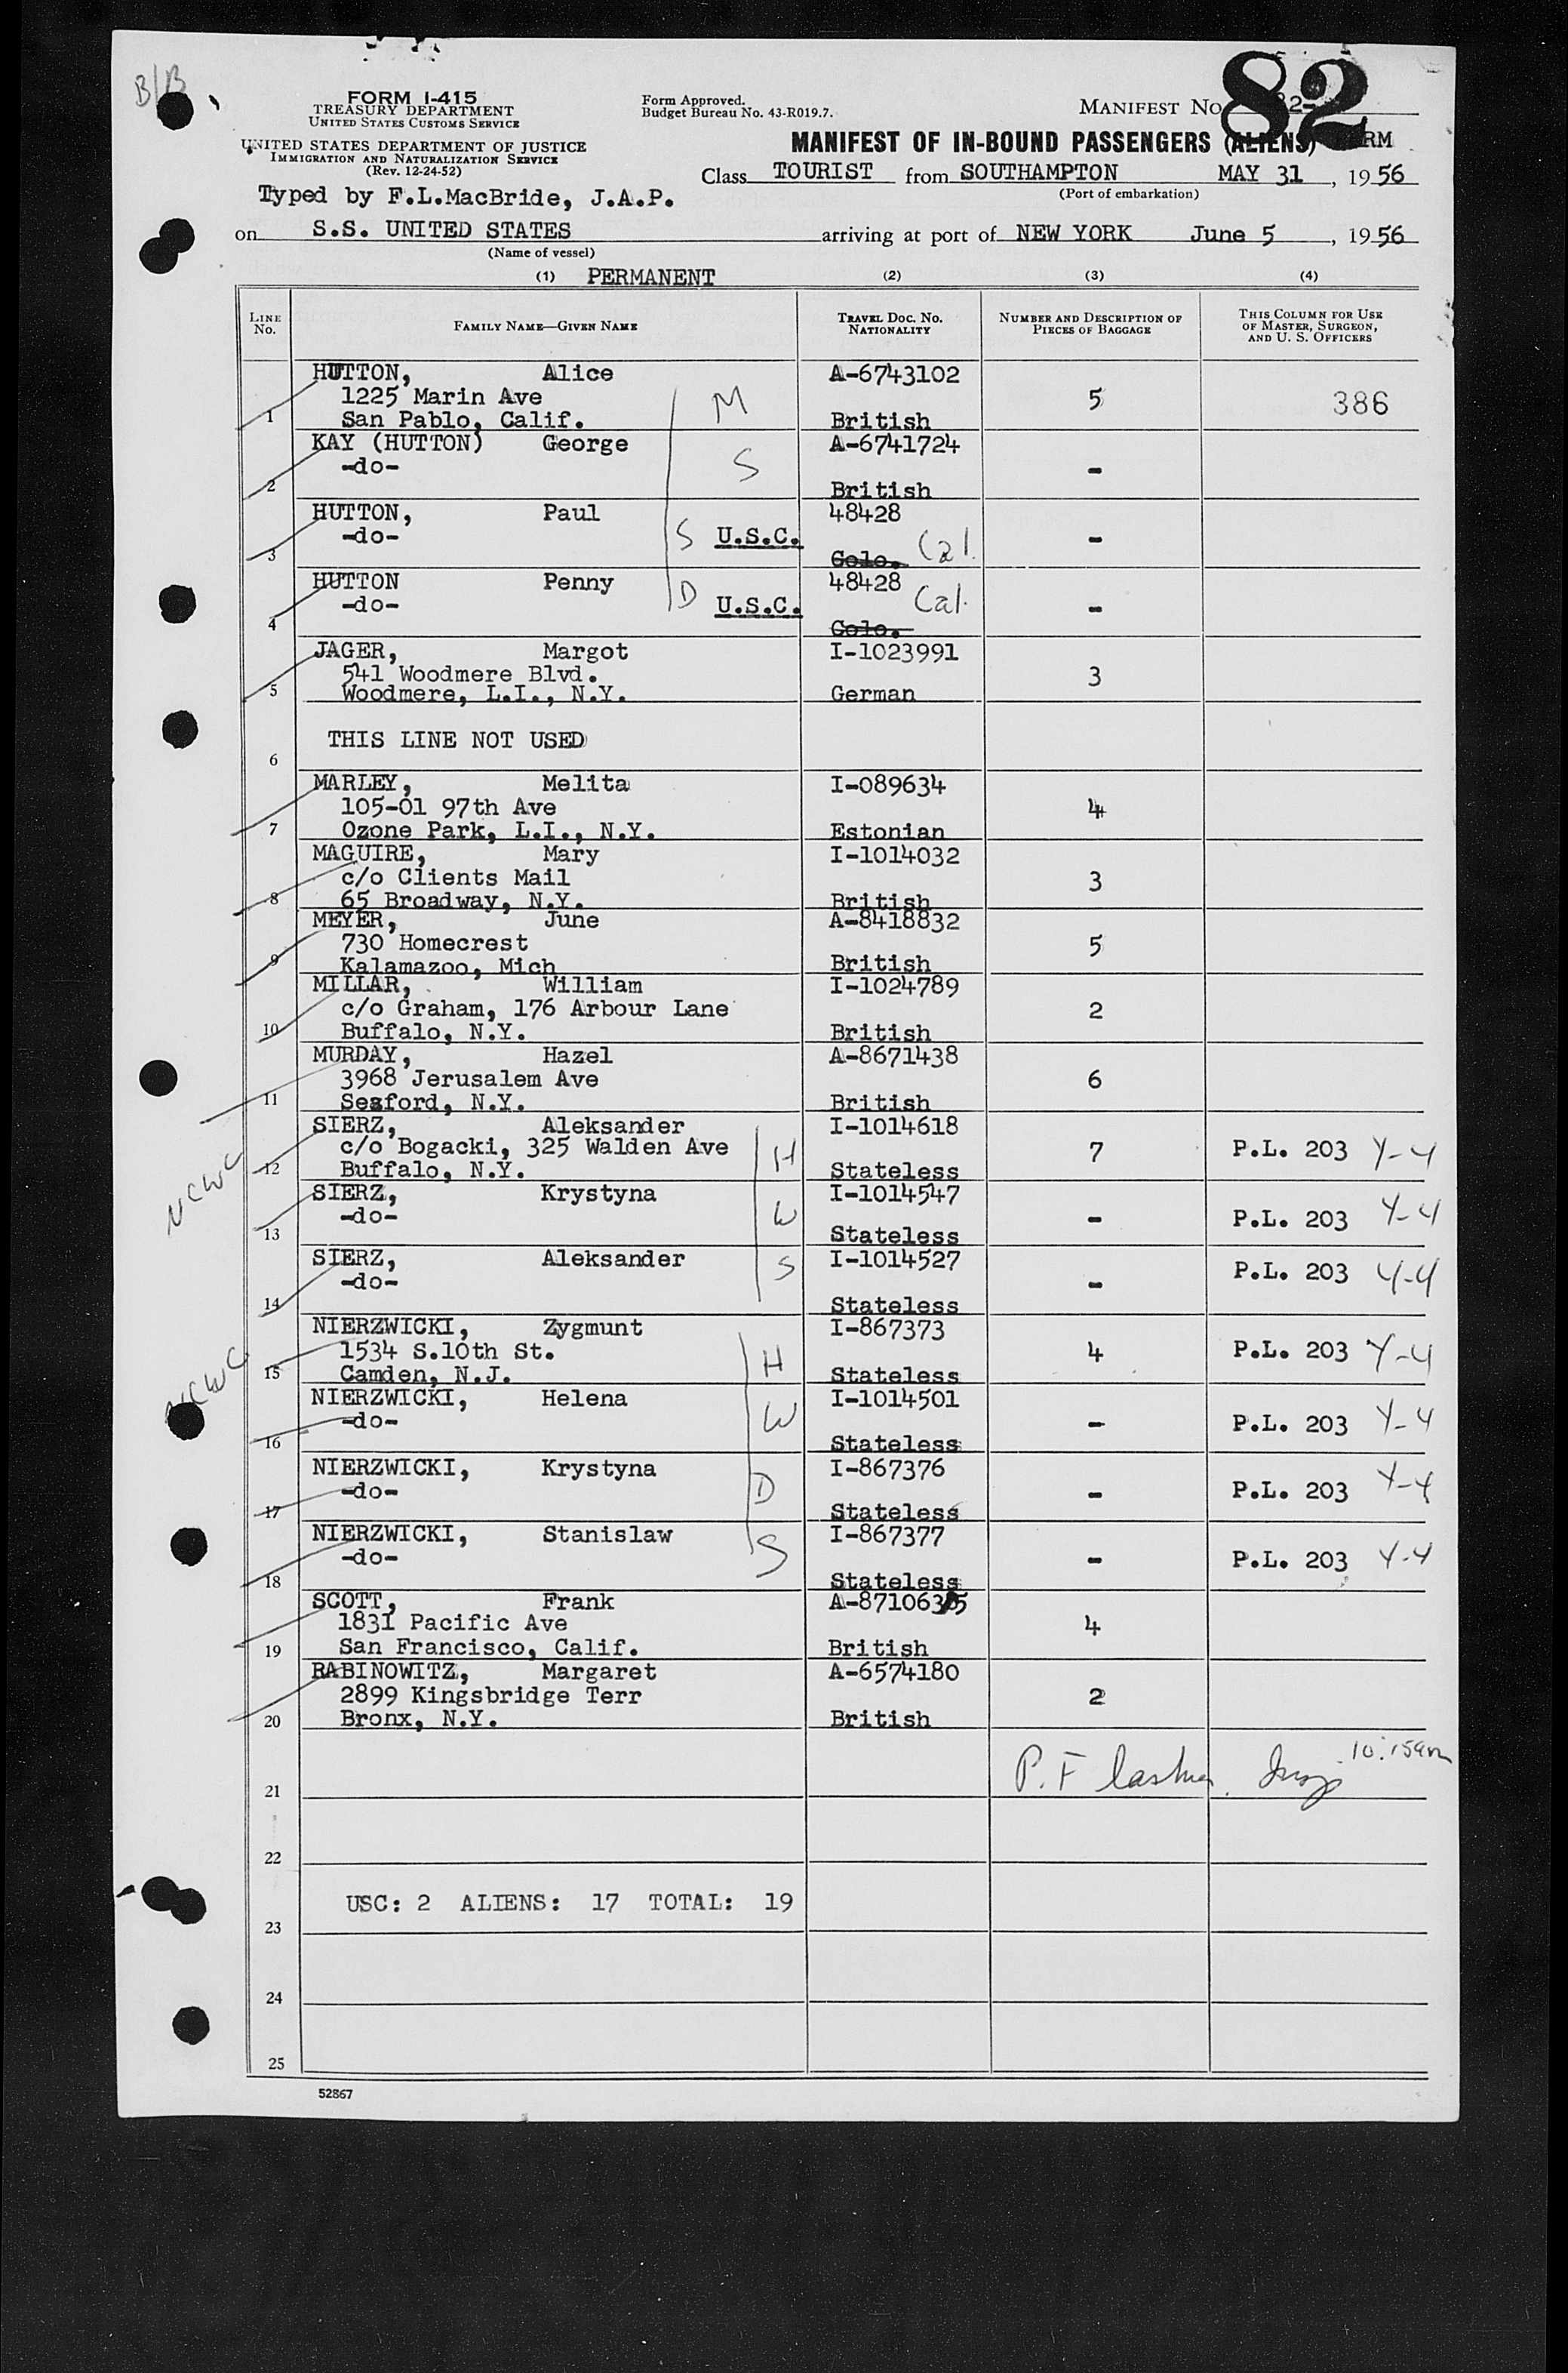 B/B
FORM I-415
TREASURY DEPARTMENT
UNITED STATES CUSTOMS SERVICE
UNITED STATES DEPARTMENT OF JUSTICE
IMMIGRATION AND NATURALIZATION SERVICE
(Rev. 12-24-52)
Form Approved.
Budget Bureau No. 43-R019.7.
MANIFEST No
82
MANIFEST OF IN-BOUND PASSENGERS (ALIENS)
Class TOURIST from SOUTHAMPTON MAY 31, 1956
(Port of embarkation)
Typed by F.L.MacBride, J.A.P.
on S.S. UNITED STATES arriving at port of NEW YORK June 5, 1956
(Name of vessel)
(1) PERMANENT (2) (3) (4)
LINE No. FAMILY NAME—GIVEN NAME TRAVEL DOC. No. NATIONALITY NUMBER AND DESCRIPTION OF PIECES OF BAGGAGE THIS COLUMN FOR USE OF MASTER, SURGEON, AND U. S. OFFICERS
HUTTON, Alice A-6743102
1225 Marin Ave M 5 386
1 San Pablo, Calif. British
KAY (HUTTON) George A-6741724
-do- S -
2 British
HUTTON, Paul 48428
-do- S U.S.C. -
3 Colo. Cal.
HUTTON Penny 48428
-do- D U.S.C. Cal. -
4 Colo.
JAGER, Margot I-1023991
541 Woodmere Blvd. 3
5 Woodmere, L.I., N.Y. German
THIS LINE NOT USED
6
MARLEY, Melita I-089634
105-01 97th Ave 4
7 Ozone Park, L.I., N.Y. Estonian
MAGUIRE, Mary I-1014032
c/o Clients Mail 3
8 65 Broadway, N.Y. British
MEYER, June A-8418832
730 Homecrest 5
9 Kalamazoo, Mich British
MILLAR, William I-1024789
c/o Graham, 176 Arbour Lane 2
10 Buffalo, N.Y. British
MURDAY, Hazel A-8671438
3968 Jerusalem Ave 6
11 Seaford, N.Y. British
SIERZ, Aleksander I-1014618
c/o Bogacki, 325 Walden Ave H 7 P.L. 203 Y-4
12 Buffalo, N.Y. Stateless
NCWC
SIERZ, Krystyna I-1014547
-do- W - P.L. 203 Y-4
13 Stateless
SIERZ, Aleksander I-1014527
-do- S - P.L. 203 Y-4
14 Stateless
NIERZWICKI, Zygmunt I-867373
1534 S.10th St. H 4 P.L. 203 Y-4
15 Camden, N.J. Stateless
NCWC
NIERZWICKI, Helena I-1014501
-do- W - P.L. 203 Y-4
16 Stateless
NIERZWICKI, Krystyna I-867376
-do- D - P.L. 203 Y-4
17 Stateless
NIERZWICKI, Stanislaw I-867377
-do- S - P.L. 203 Y-4
18 Stateless
SCOTT, Frank
1831 Pacific Ave 4
19 San Francisco, Calif. British
RABINOWITZ, Margaret A-6574180
2899 Kingsbridge Terr 2
20 Bronx, N.Y. British
10:15am
21 P. F Insp
22
USC: 2 ALIENS: 17 TOTAL: 19
23
24
25
52867